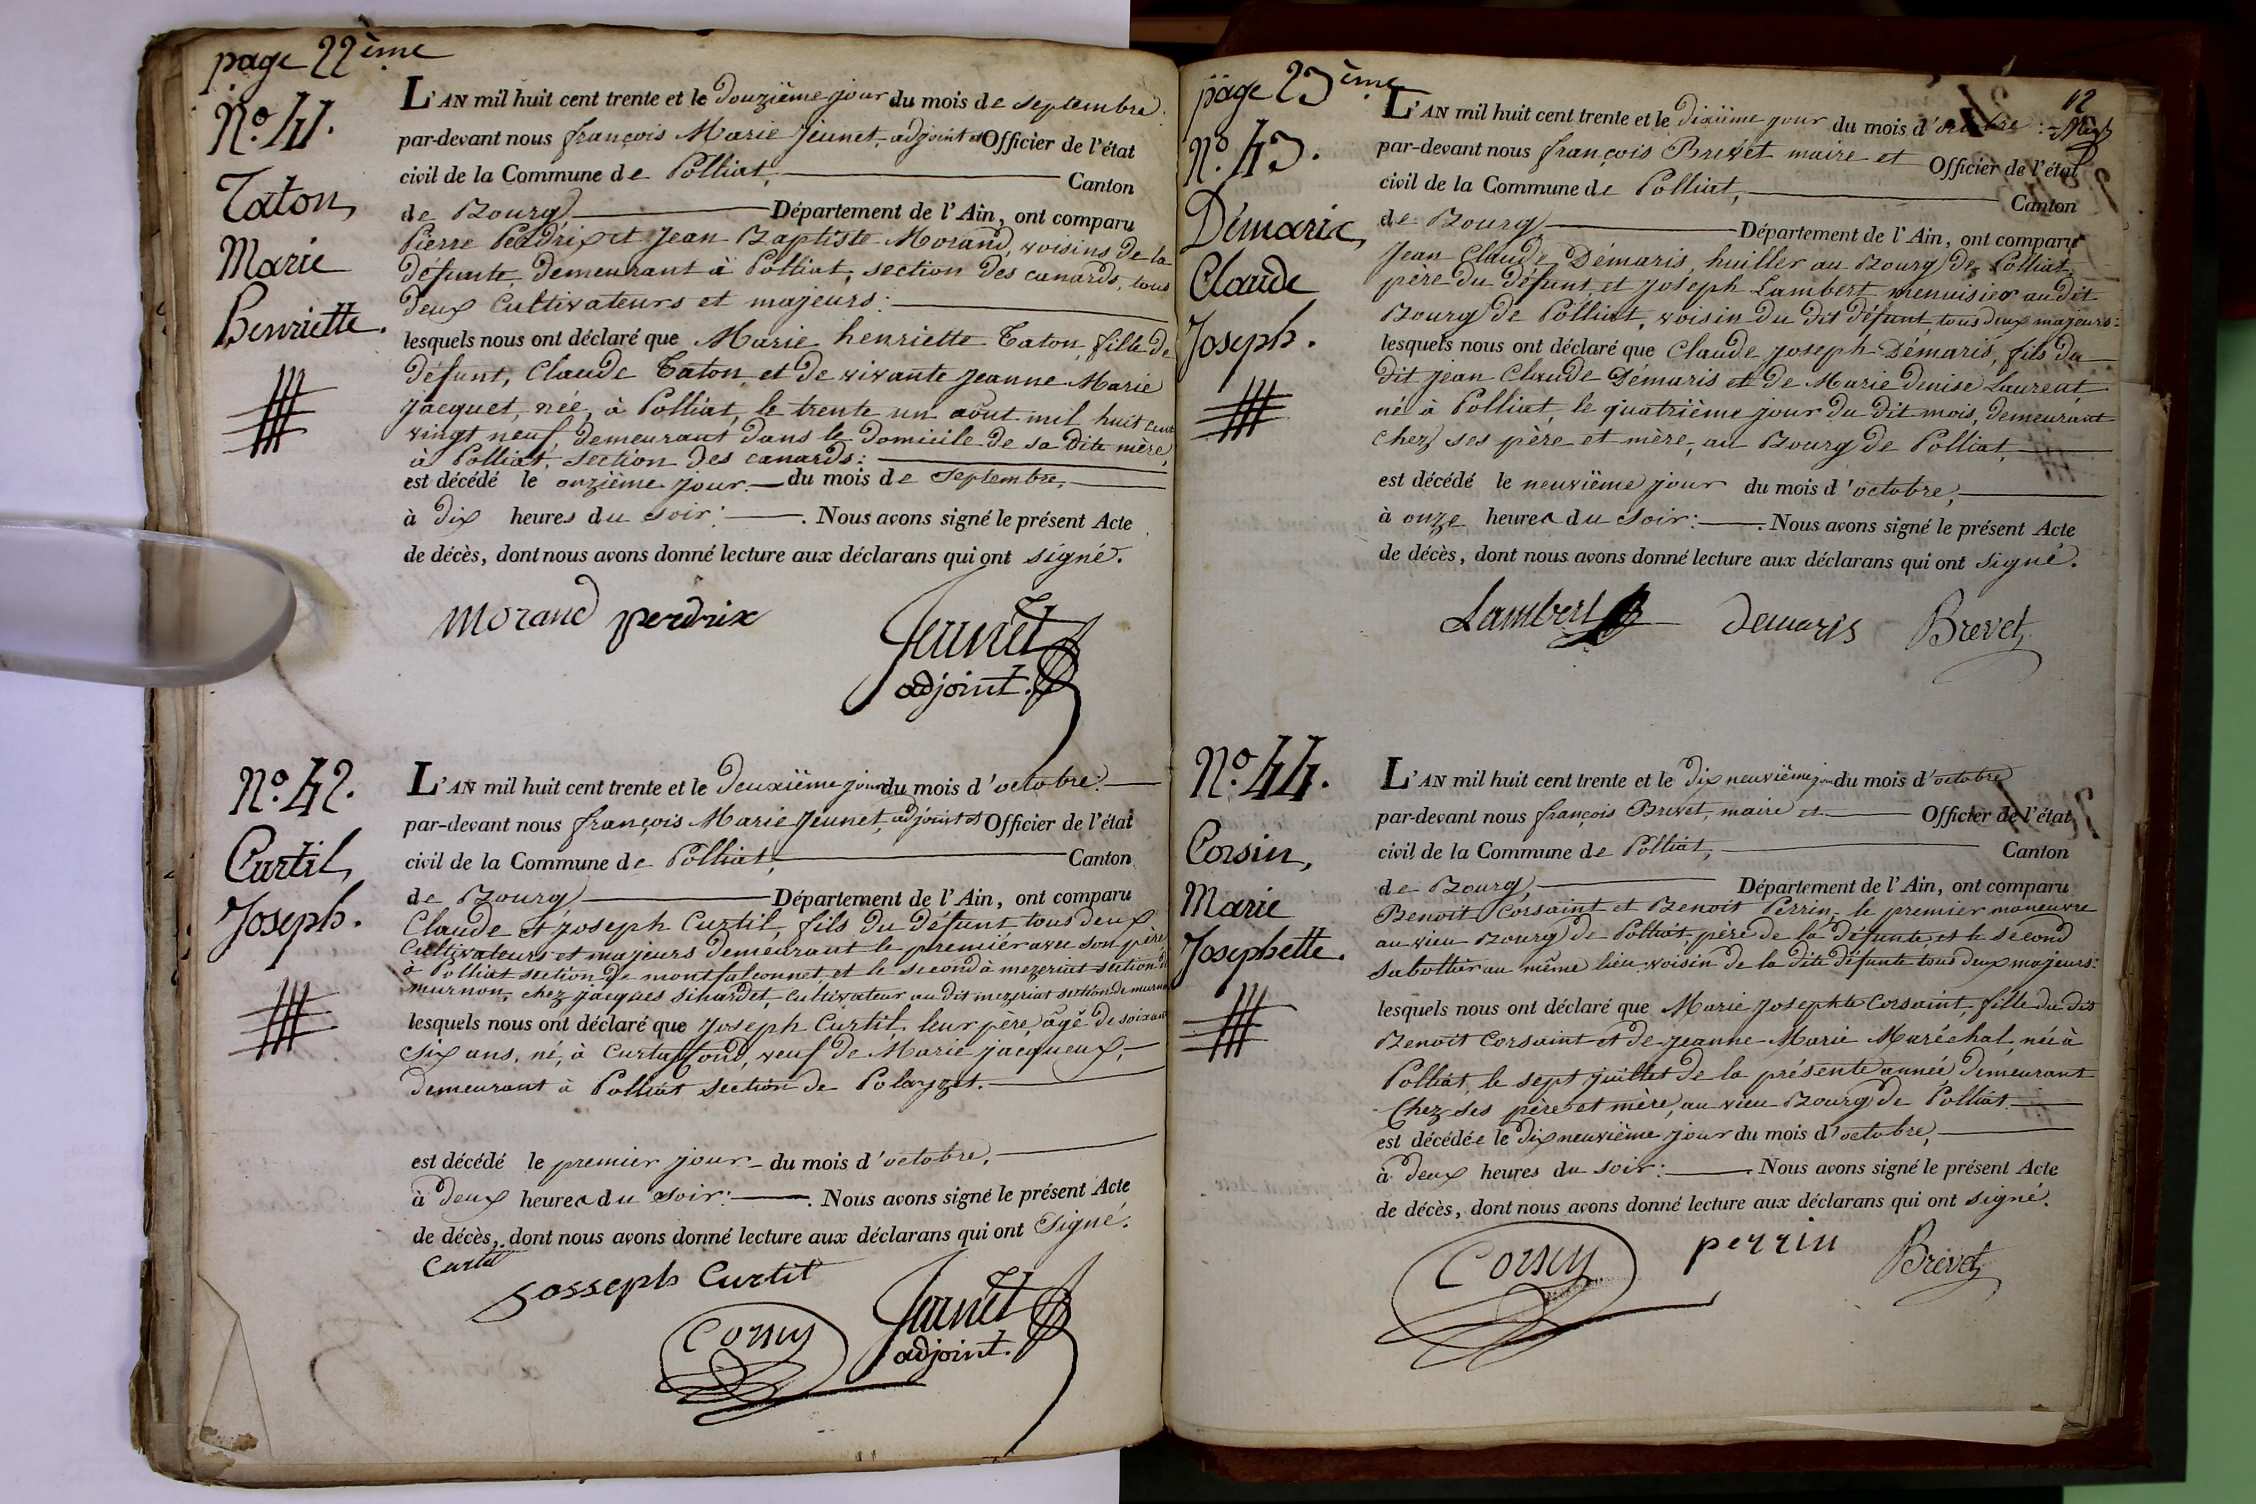 page 22ème
N.º 41.
Taton,
Marie
Henriette.
L'AN mil huit cent trente et le douzième jour du mois de septembre:
par-devant nous françois Marie Jeunet, adjoint et Officier de l'état
civil de la Commune de Polliat, Canton
de Bourg Département de l'Ain, ont comparu
Pierre Perdrix et Jean Baptiste Morand, voisins de la
défunte, demeurant à Polliat, section des canards, tous
deux cultivateurs et majeurs:
lesquels nous ont déclaré que Marie henriette Taton, fille de
défunt, Claude Taton et de vivante Jeanne Marie
Jacquet, née, à Polliat, le trente un août mil huit cent
vingt neuf, demeurant dans le domicile de sa dite mère,
à Polliat, section des canards:
est décédé le onzième jour du mois de septembre,
à dix heures du soir: . Nous avons signé le présent Acte
de décès, dont nous avons donné lecture aux déclarans qui ont signé.
Morand perdrix
Jeunet
adjoint.
N.º 42.
Curtil,
Joseph.
L'AN mil huit cent trente et le deuxième jour du mois d'octobre:
par-devant nous françois Marie Jeunet, adjoint et Officier de l'état
civil de la Commune de Polliat, Canton
de Bourg Département de l'Ain, ont comparu
Claude et Joseph Curtil, fils du défunt, tous deux
cultivateurs et majeurs demeurant le premier avec son père
à Polliat section de montfalconnet, et le second à mezeriat section de
murnon, chez jacques sinardet, cultivateur au dit mezeriat section de murnon
lesquels nous ont déclaré que Joseph Curtil, leur père, âgé de soixante
six ans, né, à Curtaffond, veuf de Marie jacqueux,
demeurant à Polliat section de Polayzet.
est décédé le premier jour du mois d'octobre,
à deux heures du soir: . Nous avons signé le présent Acte
de décès, dont nous avons donné lecture aux déclarans qui ont Signé.
Curtil
Josseph Curtit
Corsin
Jeunet
adjoint.
page 23ème
12
N.º 43.
Démaris,
Claude
Joseph.
L'AN mil huit cent trente et le dixième jour du mois d'octobre:
par-devant nous françois Brevet maire et Officier de l'état
civil de la Commune de Polliat, Canton
de Bourg Département de l'Ain, ont comparu
Jean Claude Démaris, huillier au Bourg de Polliat,
père du défunt, et Joseph Lambert menuisier au dit
Bourg de Polliat, voisin du dit défunt, tous deux majeurs:
lesquels nous ont déclaré que Claude Joseph Démaris, fils du
dit Jean Claude Démaris et de Marie denise Laurent,
né à Polliat, le quatrième jour du dit mois, demeurant
chez ses père et mère, au Bourg de Polliat,
est décédé le neuvième jour du mois d'octobre,
à onze heures du soir: . Nous avons signé le présent Acte
de décès, dont nous avons donné lecture aux déclarans qui ont signé.
Lambert Demaris Brevet
N.º 44.
Corsin,
Marie
Josephette.
L'AN mil huit cent trente et le dix neuvième jour du mois d'octobre
par-devant nous françois Brevet, maire et Officier de l'état
civil de la Commune de Polliat, Canton
de Bourg, Département de l'Ain, ont comparu
Benoit Corsaint et Benoit Perrin, le premier manœuvre
au vieu Bourg de Polliat, père de la défunte, et le second
sabottier au même lieu voisin de la dite défunte tous deux majeurs:
lesquels nous ont déclaré que Marie Josephte Corsaint, fille du dit
Benoit Corsaint et de Jeanne Marie Maréchal, née à
Polliat, le sept juillet de la présente année, demeurant
chez ses père et mère, au vieu Bourg de Polliat.
est décédée le dix neuvième jour du mois d'octobre,
à deux heures du soir: . Nous avons signé le présent Acte
de décès, dont nous avons donné lecture aux déclarans qui ont signé.
Corsin perrin Brevet